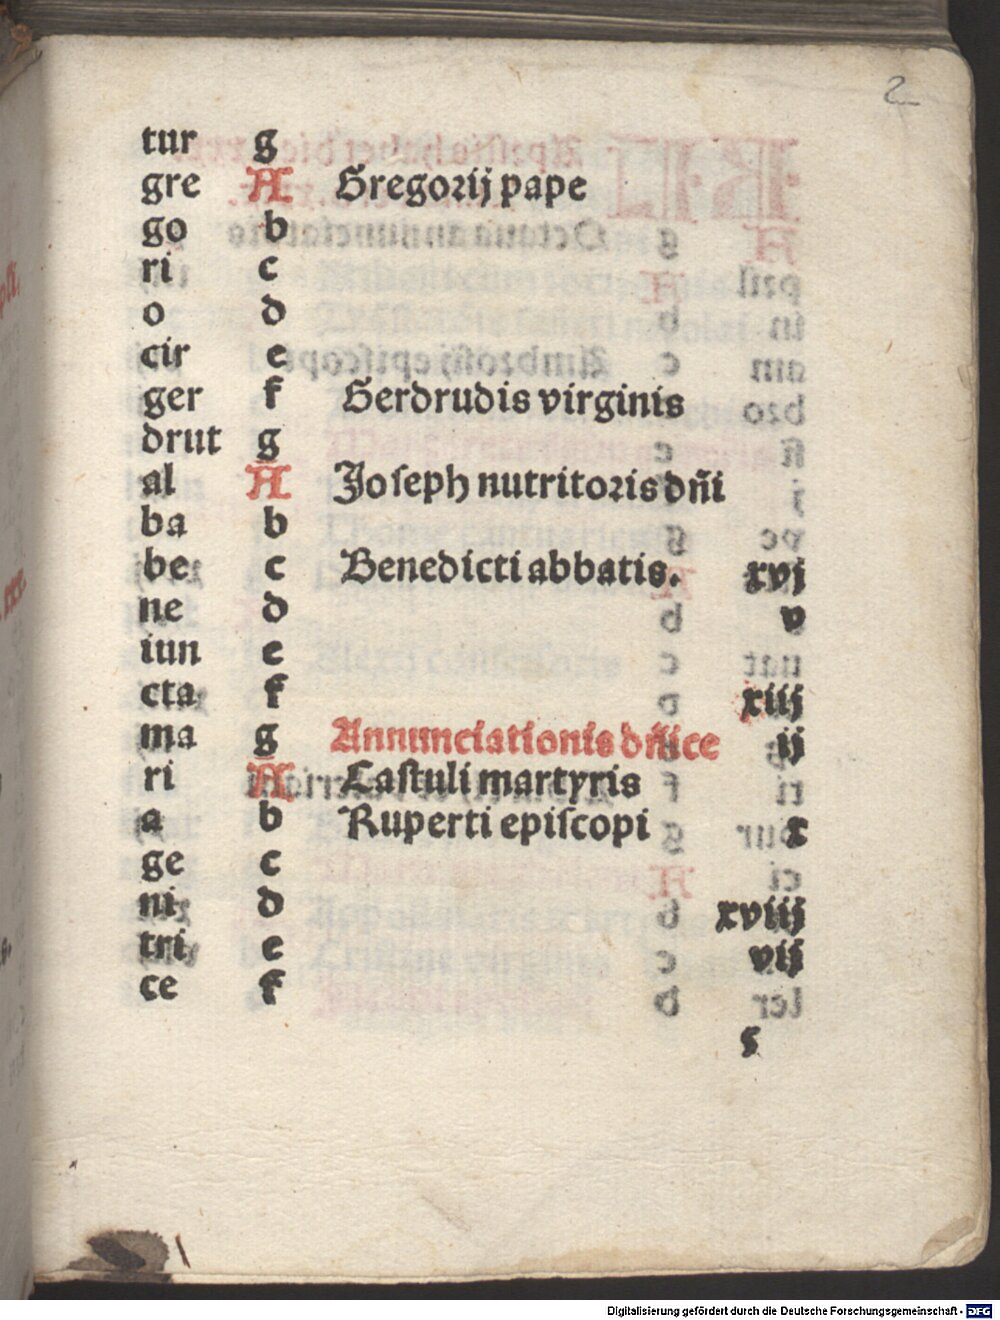 2
tur g
gre A Gregorij pape
go b
ri c
o d
cir e
ger f Gerdrudis virginis
drut g
al A Joseph nutritoris dñi
ba b
be c Benedicti abbatis. xvj
ne d v
iun e
cta f xiij
ma g Annunciationis dñice ij
ri A Castuli martyris
a b Ruperti episcopi x
ge c
ni d xviij
tri e vij
ce f
Digitalisierung gefördert durch die Deutsche Forschungsgemeinschaft - DFG